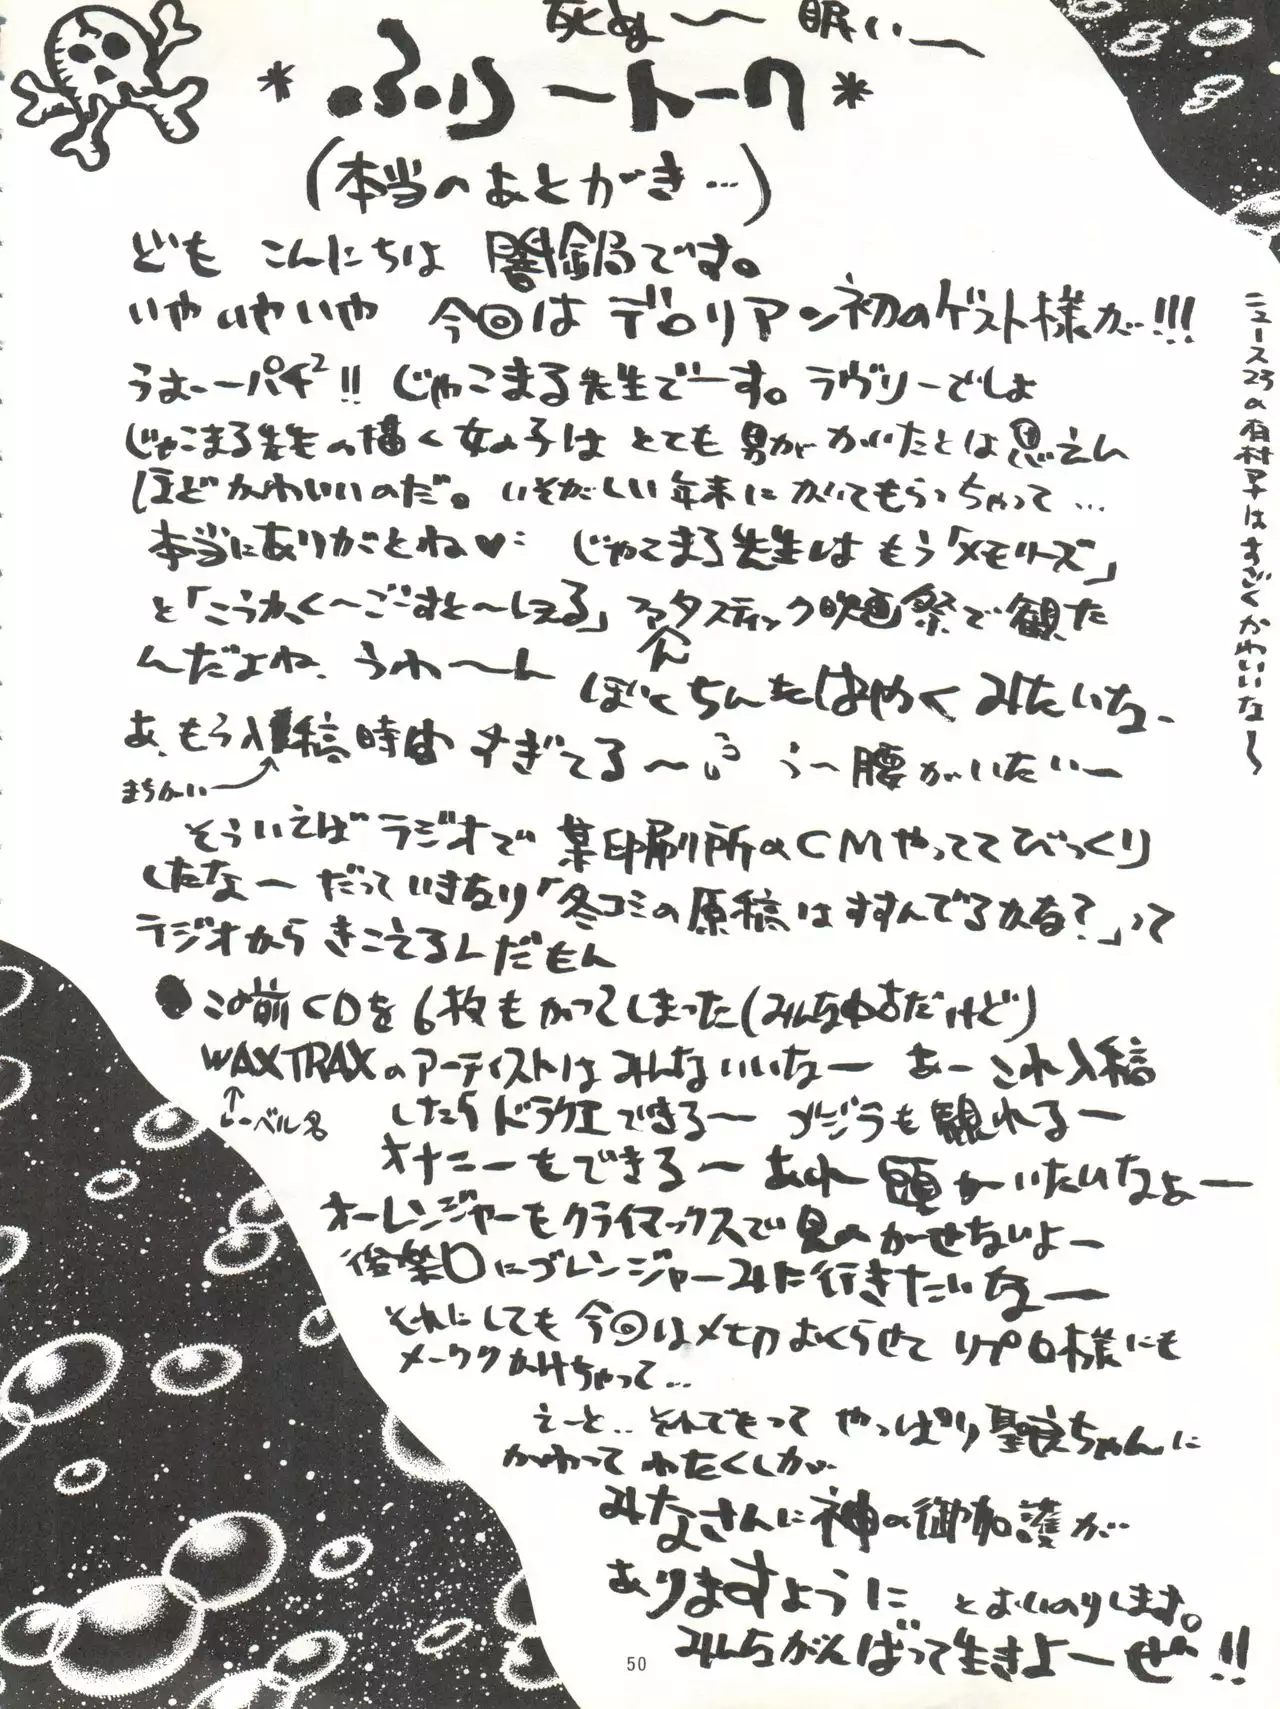 死ぬ〜 眠い〜
*ふりートーク*
(本当のあとがき…)
ども こんにちは 闇鍋です。
いやいやいや 今回は デロリアン初のゲスト様が!!!
うぉーパチ²!! じゃこまる先生でーす。ラヴリーでしょ
じゃこまる先生の描く女の子は とても 男がかいたとは思えん
ほどかわいいのだ。いそがしい年末にかいてもらっちゃって…
本当にありがとね♥ じゃこまる先生はもう「メモリーズ」
と「こうかく〜ごーすと〜しぇる」ファンタスティック映画祭で観た
んだよね、うわ〜ん ぼくちんもはやくみたいな、
あ、もう入稿時間すぎてる〜 う〜腰がいたいー
まちがい
そういえばラジオで某印刷所のCMやっててびっくり
したなー だっていきなり「冬コミの原稿はすすんでるかな?」って
ラジオからきこえるんだもん
●この前CDを6枚もかってしまった(みんな中古だけど)
WAXTRAXのアーティストはみんないいなー あー これ入稿
レーベル名
したらドラクエできる〜 ゴジラも観れるー
オナニーもできる〜 あれ 頭がいたいなぁー
オーレンジャーもクライマックスで見のがせないよー
後楽園にゴレンジャーみに行きたいなー
それにしても今回はメ切おくらせてリプロ様にも
メーワクかけちゃって…
えーと..それでもってやっぱり聖良ちゃんに
かわってわたくしが
みなさんに神の御加護が
ありますように とおいのりします。
みんながんばって生きよーぜ!!
ニュース23の有村アナはすごくかわいいな〜
50